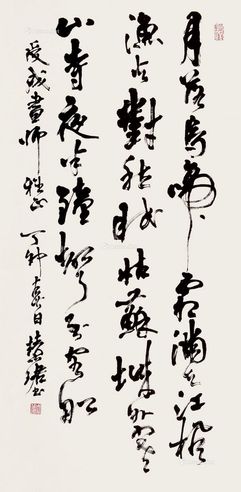 月落烏啼霜滿天江楓
漁火對愁眠姑蘇城外寒
山寺夜半鐘聲到客船
畫師雅正 丁卯